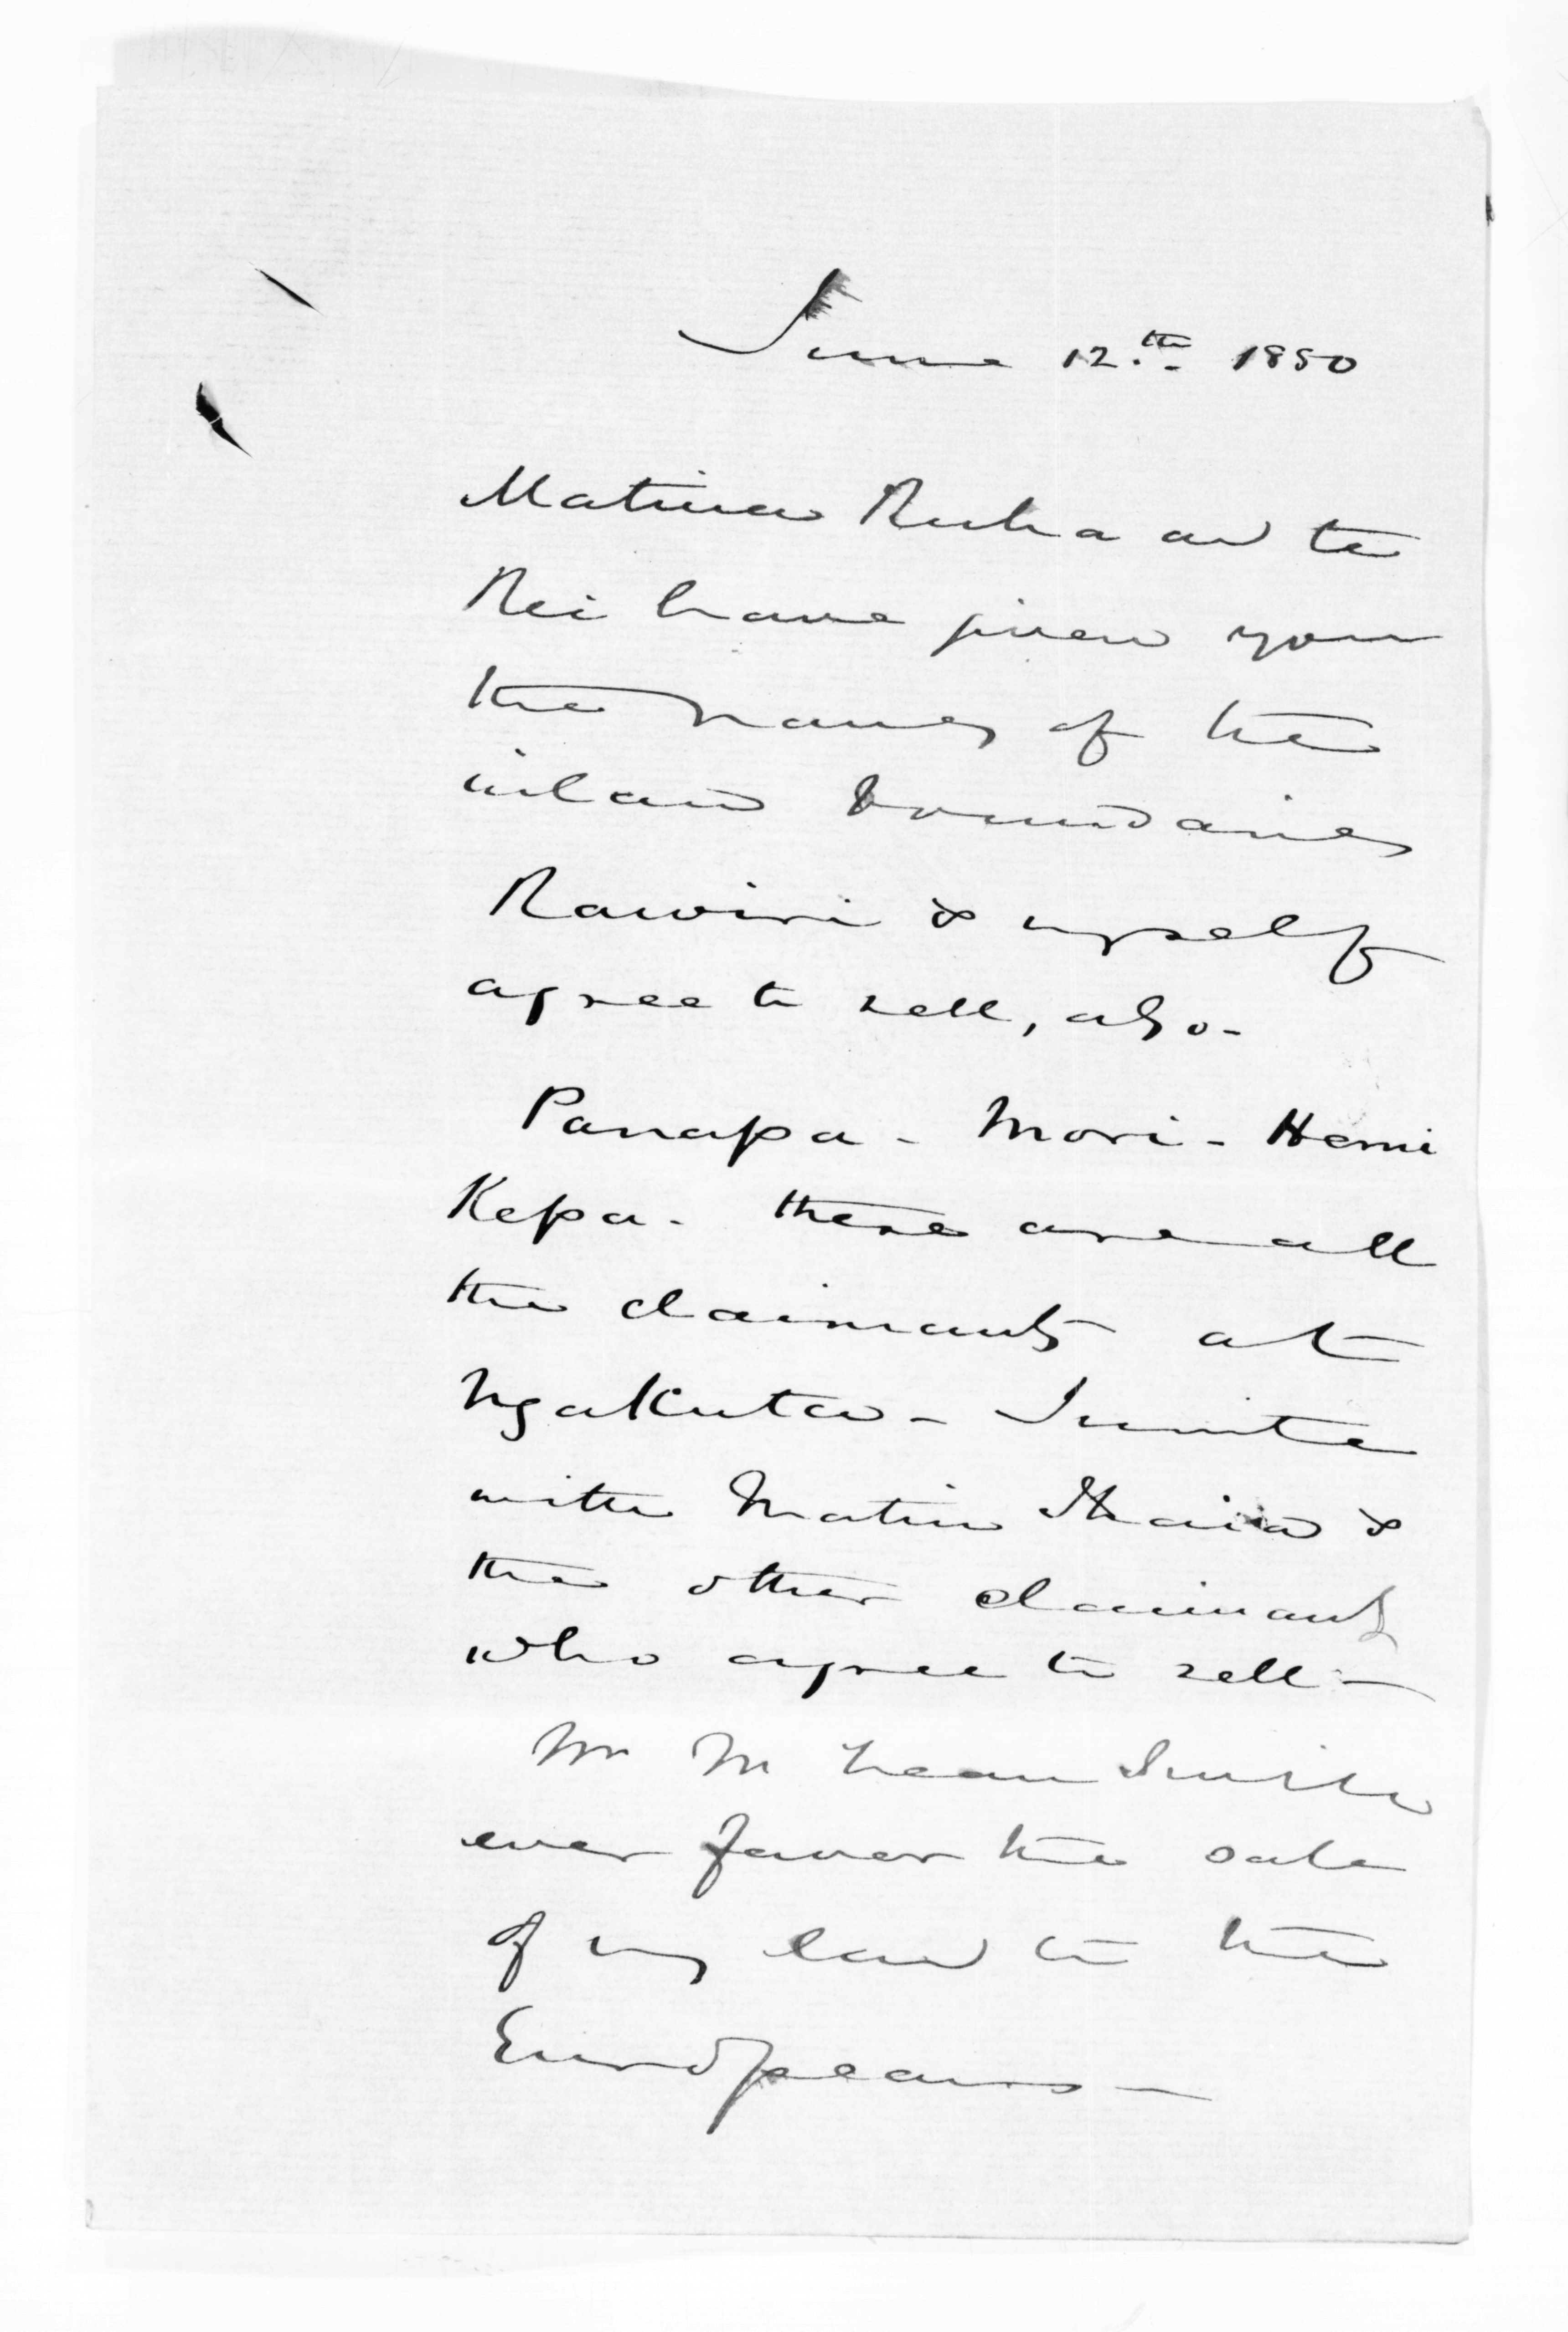 June 12.th 1850
Matiu Ruha and te
Rei have given you
the names of the
inland boundaries
Rawiri & myself
agree to sell, also-
Panapa - Mori - Hemi
Kepa. these are all
the claimants at
Ngakuta - I unite
with Matiu Ihaia &
the other claimants
who agree to sell -
Mr M Lean I will
ever favor the sale
of my land to the
Europeans -